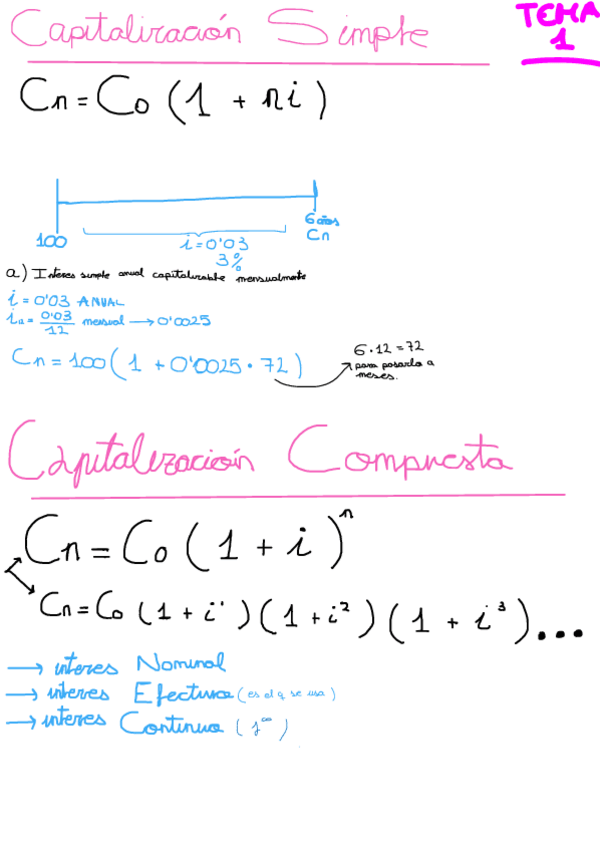 Capitalización Simple
TEMA
1
Cn = Co (1 + ni)
100
6 años
Cn
i = 0'03
3%
a) Interes simple anual capitalizable mensualmente
i = 0'03 ANUAL
i₁₂ = 0'03/12 mensual → 0'0025
Cn = 100 (1 + 0'0025 · 72)
6 · 12 = 72
para pasarlo a
meses.
Capitalización Compuesta
Cn = Co (1 + i)ⁿ
Cn = Co (1 + i¹) (1 + i²) (1 + i³) ...
→ interes Nominal
→ interes Efectivo (es el q se usa)
→ interes Continuo (j∞)